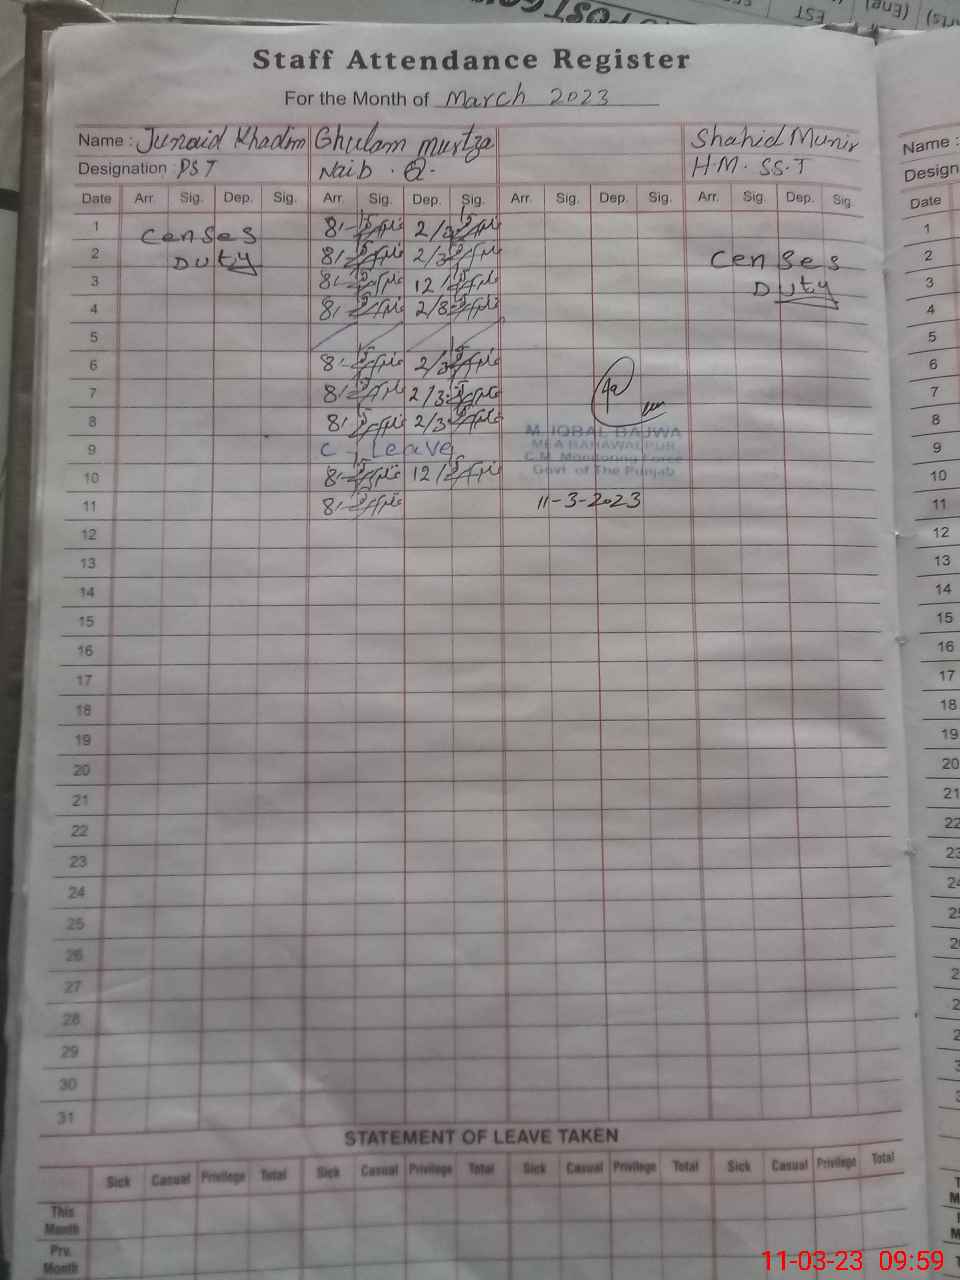 EST
(Eng)
Staff Attendance Register
For the Month of March 2023
Name : Junaid Khadim Ghulam murtza Shahid Munir
Designation : PST Naib . Q. H.M. SS.T
Date Arr. Sig. Dep. Sig. Arr. Sig. Dep. Sig. Arr. Sig. Dep. Sig. Arr. Sig. Dep. Sig.
1 Censes 8/- 2/3
2 Duty 8/- 2/3 Censes
3 8/- 12/ Duty
4 8/- 2/8
5
6 8/- 2/3
7 8/- 2/3
8 8/- 2/3 M. IQBAL BAJWA
9 C - Leave MEA BAHAWALPUR
C.M. Monitoring Force
10 8/- 12/ Govt. of The Punjab
11 8/- 11-3-2023
12
13
14
15
16
17
18
19
20
21
22
23
24
25
26
27
28
29
30
31
STATEMENT OF LEAVE TAKEN
Sick Casual Privilege Total Sick Casual Privilege Total Sick Casual Privilege Total Sick Casual Privilege Total
This
Month
Prv.
Month
Name :
Design
Date
1
2
3
4
5
6
7
8
9
10
11
12
13
14
15
16
17
18
19
20
21
22
23
11-03-23 09:59